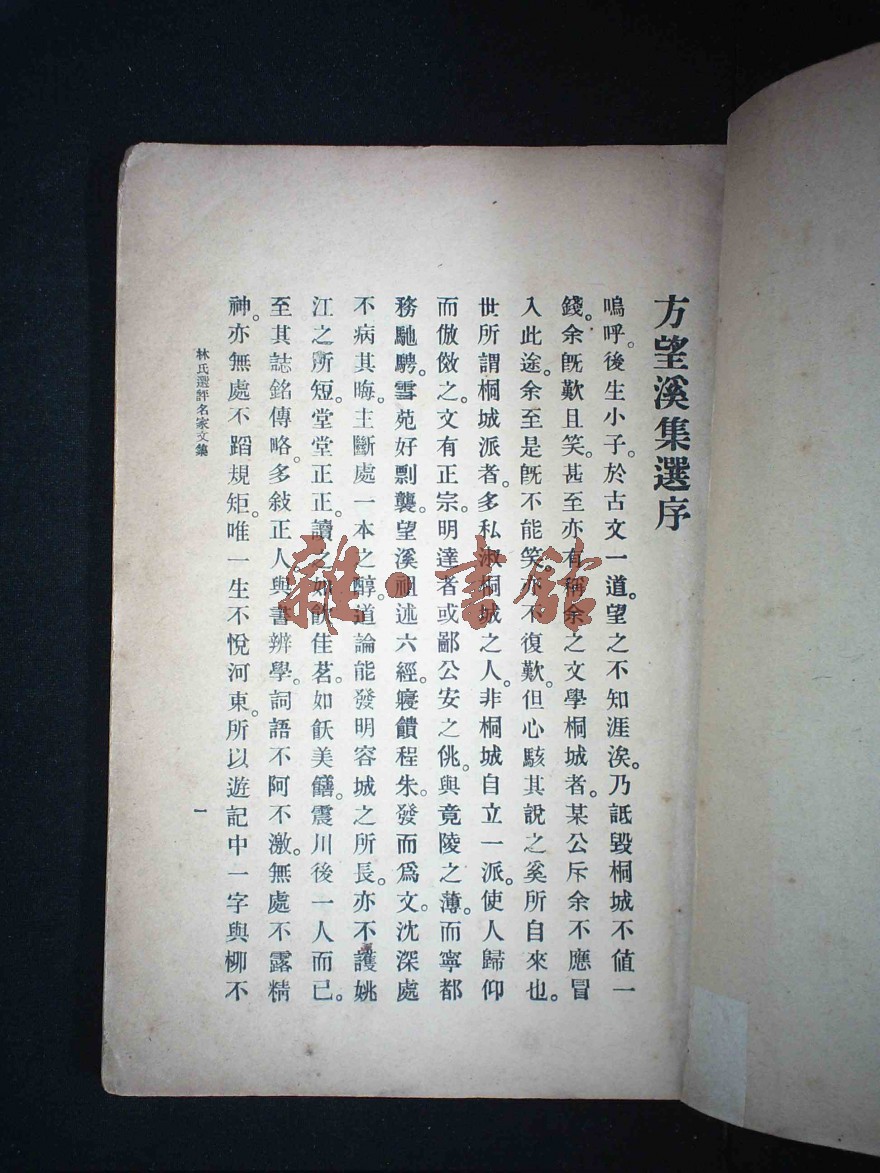 方望溪集選序
嗚呼。後生小子。於古文一道。望之不知涯涘。乃詆毀桐城不値一
錢。余旣歎且笑。甚至亦有稱余之文學桐城者。某公斥余不應冒
入此途。余至是旣不能笑。亦不復歎。但心駭其說之奚所自來也。
世所謂桐城派者。多私淑桐城之人。非桐城自立一派。使人歸仰
而倣傚之。文有正宗。明達者或鄙公安之佻。與竟陵之薄。而寧都
務馳騁。雪苑好剽襲。望溪祖述六經。寢饋程朱。發而爲文。沈深處
不病其晦。主斷處一本之醇。道論能發明容城之所長。亦不護姚
江之所短。堂堂正正。讀之如飮佳茗。如飫美饍。震川後一人而已。
至其誌銘傳略。多敍正人。與書辨學。詞語不阿不激。無處不露精
神。亦無處不蹈規矩。唯一生不悅河東。所以遊記中一字與柳不
林氏選評名家文集
一
雜·書館